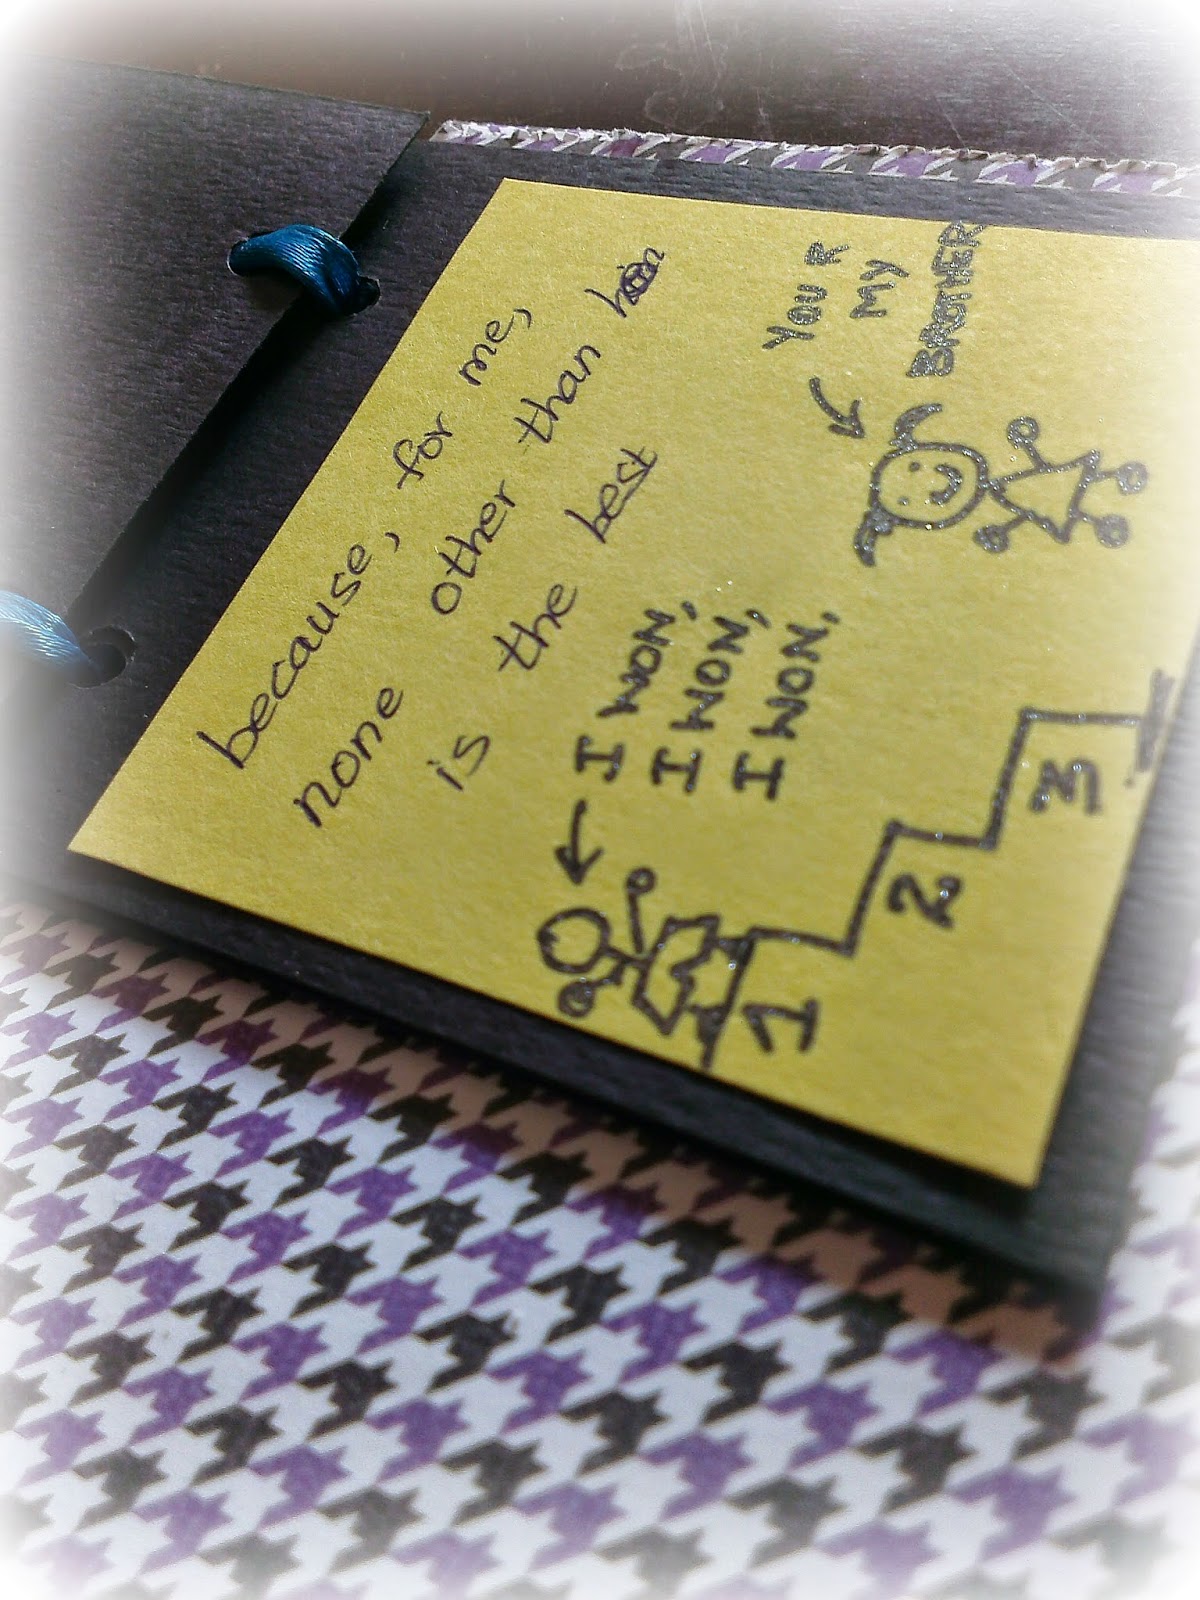 because, for me,
none other than him
is the best
I WON,
I WON,
I WON,
YOU R
MY
BROTHER
1
2
3